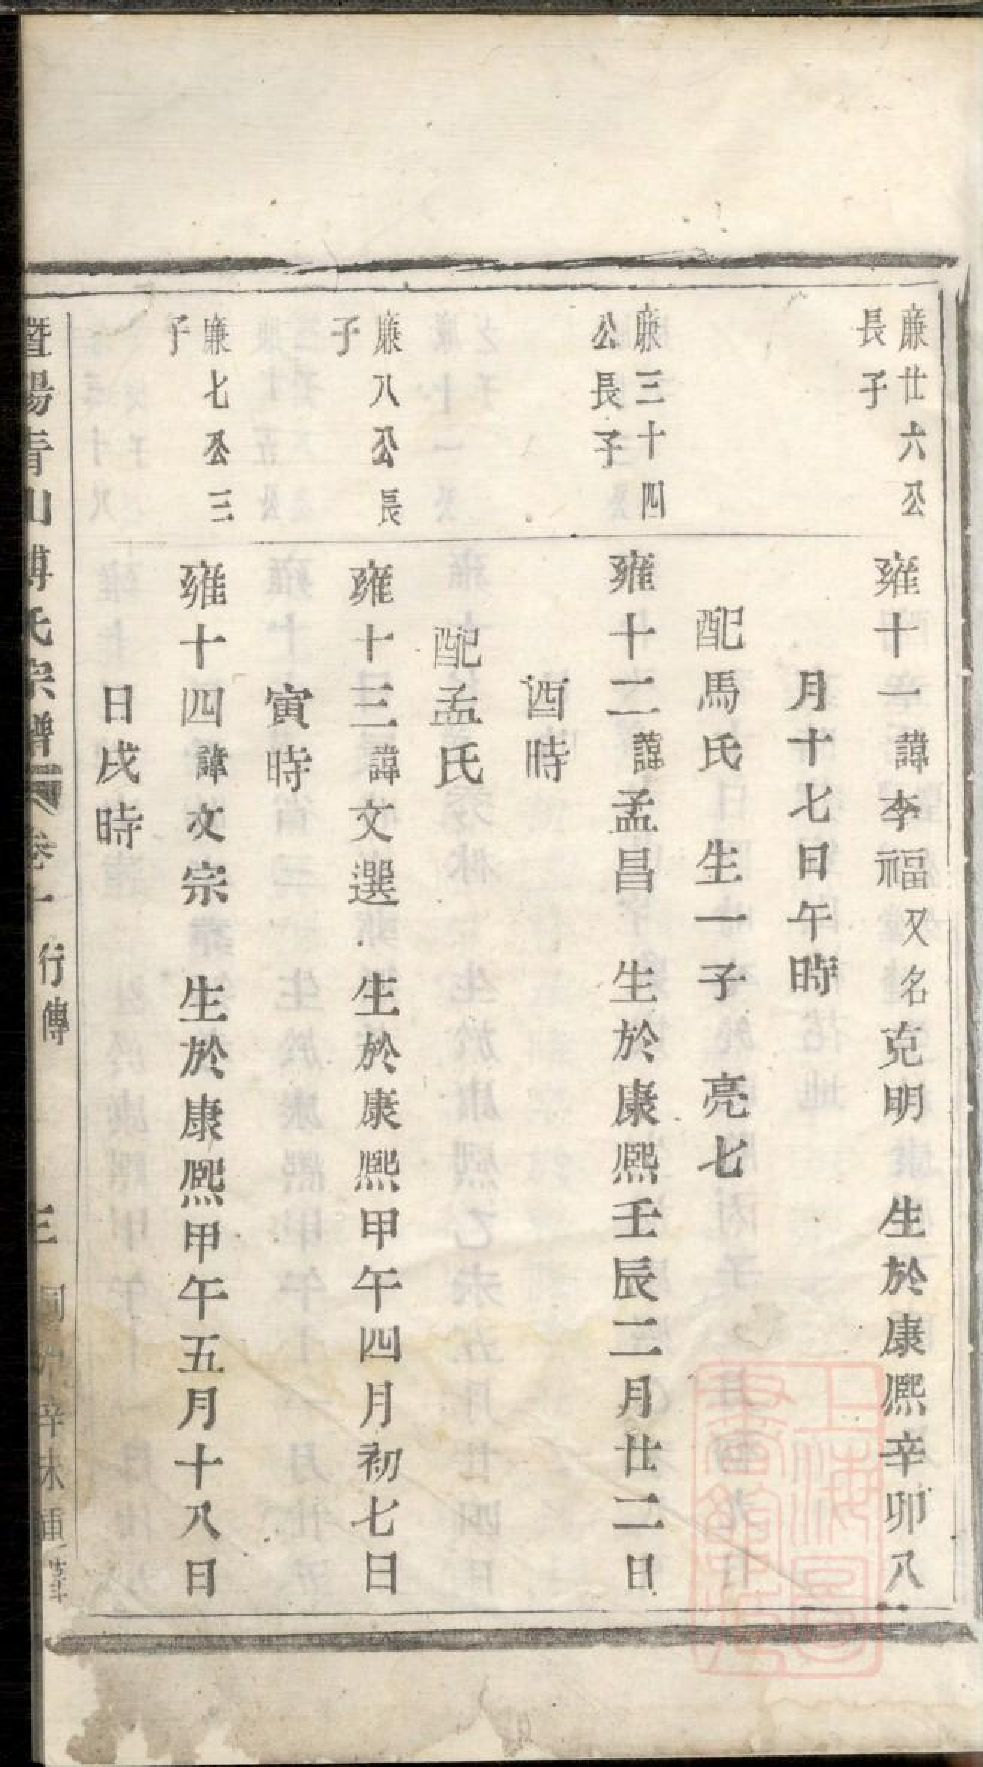 廉廿六公
長子
雍十一諱李福又名克明 生於康熙辛卯八
月十七日午時
配馬氏 生一子 亮七
廉三十四
公長子
雍十二諱孟昌 生於康熙壬辰二月廿二日
酉時
配孟氏
廉八公長
子
雍十三諱文選 生於康熙甲午四月初七日
寅時
廉七公三
子
雍十四諱文宗 生於康熙甲午五月十八日
日戌時
暨陽青山傅氏宗譜 卷一 行傳 三 同治辛未重葺
上海圖書館藏